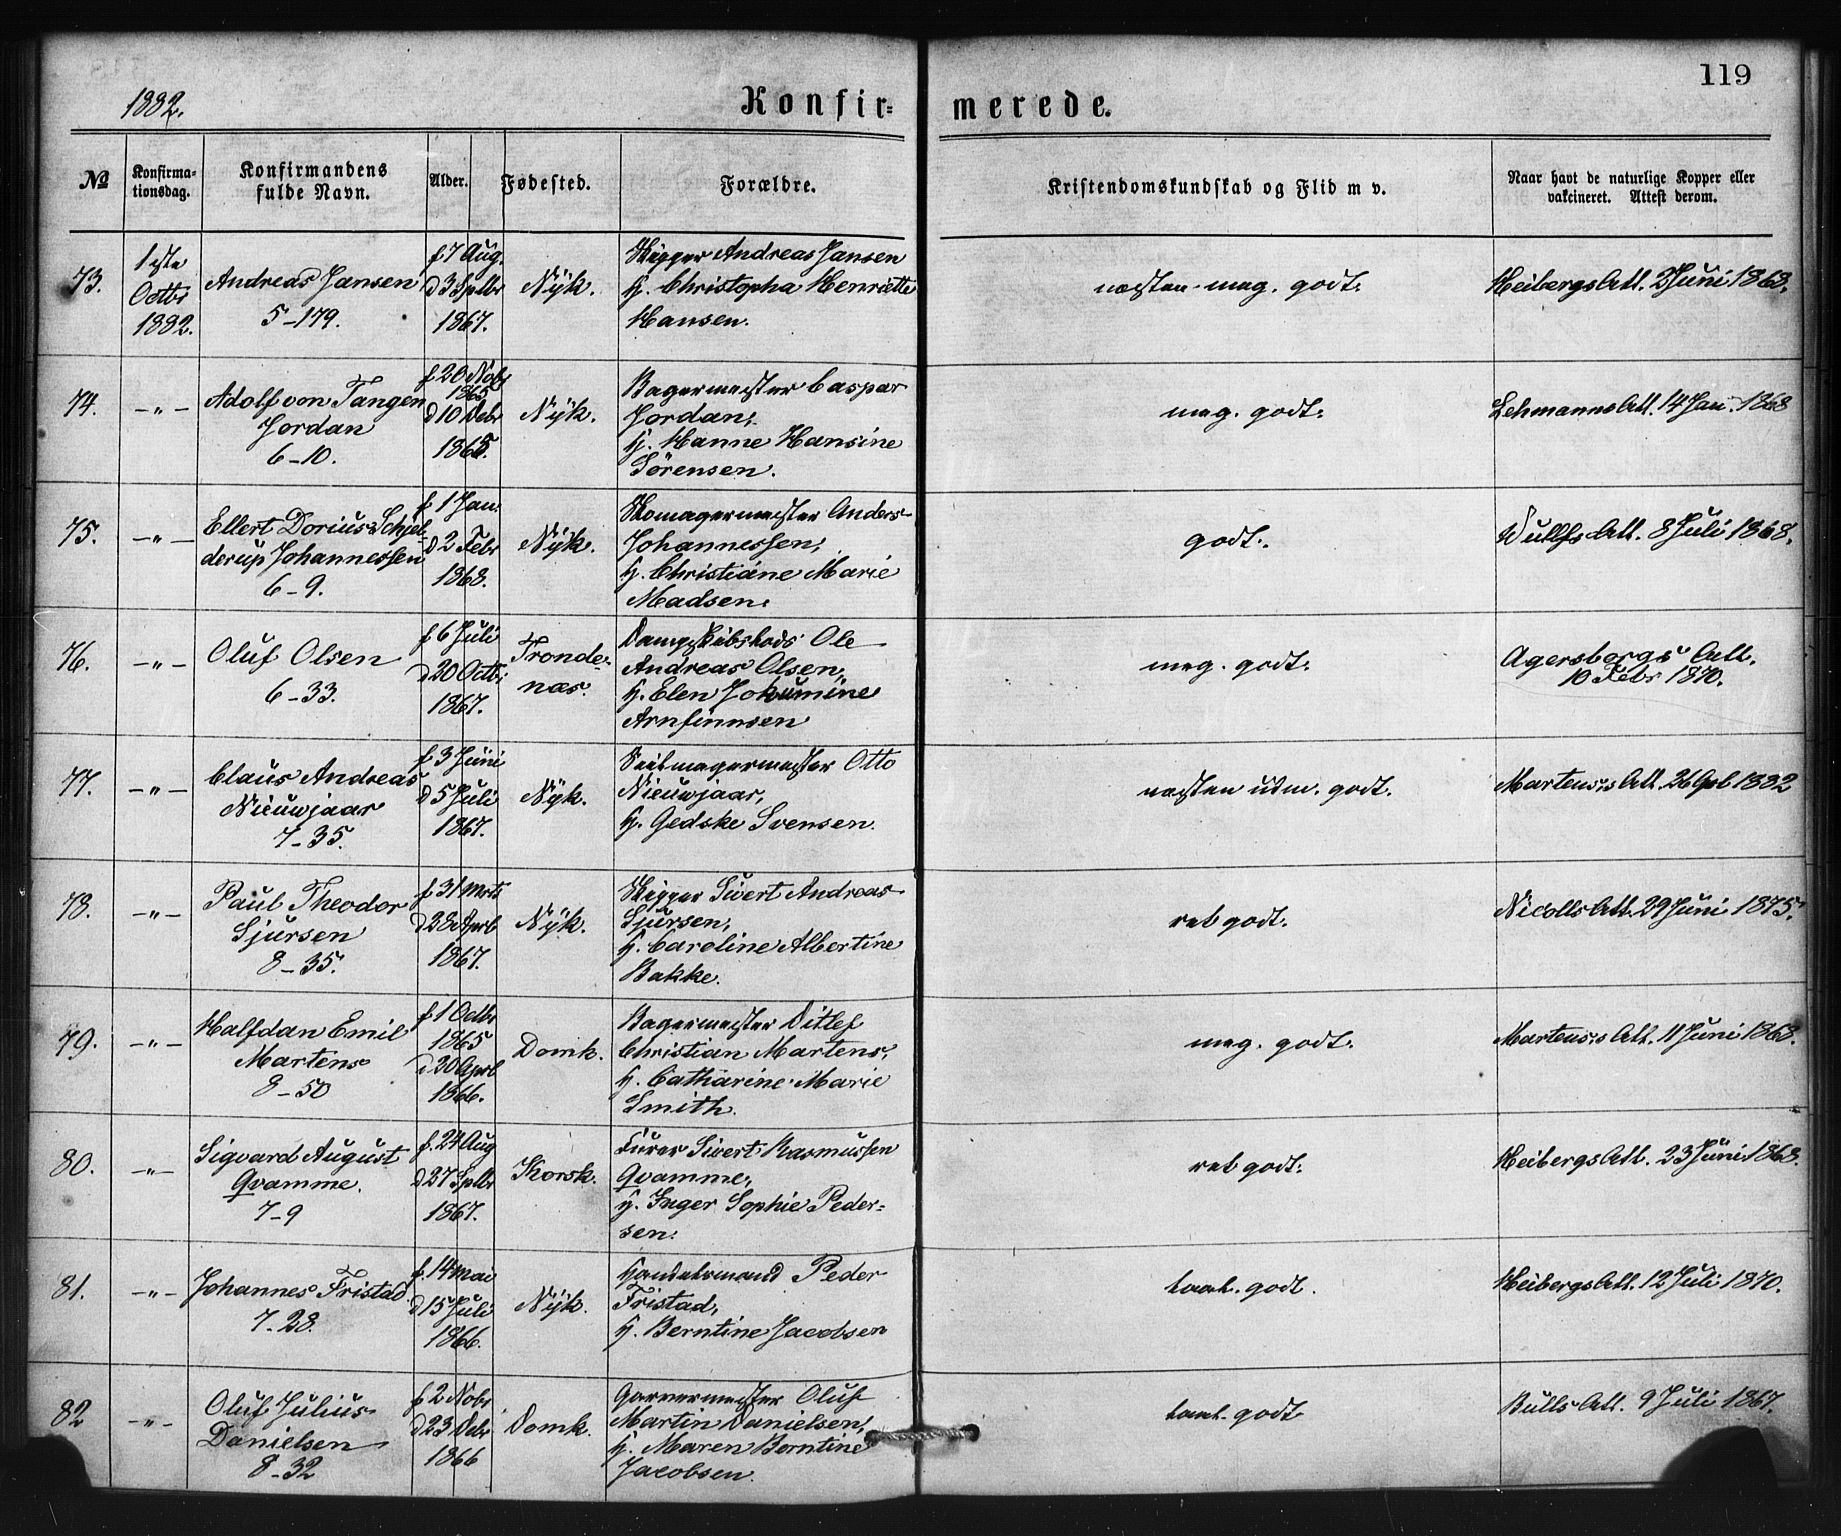 119
1882.
Konfir=
merede.
No
Konfirma-
tionsdag.
Konfirmandens
fulde Navn.
Alder.
Fødested.
Forældre.
Kristendomskundskab og Flid m v.
Naar havt de naturlige Kopper eller
vakcineret. Attest derom.
73.
1ste
Octbr
1882.
Andreas Jansen
5-179.
f 7 Aug.
d 3 Sptbr
1867.
Nÿk.
Skipper Andreas Jansen
H. Christopha Henriette
Hansen.
næsten meg. godt.
Heibergs Att. 2 Juni 1868.
74.
-"-
Adolf von Tangen
Jordan
6-10.
f 20 Nobr
1865
d 10 Debr
1865.
Nÿk.
Bagermester Caspar
Jordan,
H. Hanne Hansine
Sörensen.
meg. godt.
Lehmanns Att. 14 Jan. 1868
75.
-"-
Ellert Dorius Schjel-
derup Johannessen
6-9.
f 1 Jan.
d 2 Febr
1868.
Nÿk.
Skomagermester Anders
Johannessen,
H. Christiane Marie
Madsen.
godt.
Wullfs Att. 8 Juli 1868.
76.
-"-
Oluf Olsen
6-33.
f 6 Juli
d 20 Octbr
1867.
Tronde-
næs.
Dampskibskods Ole
Andreas Olsen,
H. Elen Johumine
Arnfinnsen
meg. godt.
Agersborgs Att.
10 Febr 1870.
77.
-"-
Claus Andreas
Nieuwjaar
7-35.
f 3 Juni
d 5 Juli
1867.
Nÿk.
Seilmagermester Otto
Nieuwjaar,
H. Gedske Svensen.
næsten udm. godt.
Martens's Att. 26 Apl 1882
78.
-"-
Paul Theodor
Sjursen
8-35.
f 31 Mrts
d 28 Aprl
1867.
Nÿk.
Skipper Sivert Andreas
Sjursen,
H. Caroline Albertine
Bakke.
ret godt.
Nicolls Att. 29 Juni 1875.
79.
-"-
Halfdan Emil
Martens
8-50
f 1 Octbr
1865
d 20 Aprl
1866.
Domk.
Bagermester Ditlef
Christian Martens,
H. Catharine Marie
Smith.
meg. godt.
Martens's Att. 11 Juni 1868.
80.
-"-
Sigvard August
Qvamme.
7-9
f. 24 Aug
d 27 Sptbr
1867.
Korsk.
Furer Sivert Rasmussen
Qvamme,
H. Inger Sophie Peder=
sen.
ret godt.
Heibergs Att. 23 Juni 1868.
81.
-"-
Johannes Fristad
7-28.
f. 14 Mai
d 15 Juli
1866.
Nÿk.
Handelsmand Peder
Fristad,
H. Berntine Jacobsen
taal. godt.
Heibergs Att. 12 Juli 1870.
82
-"-
Oluf Julius
Danielsen
8-32
f 2 Nobr
d 23 Debr
1866
Domk.
Garvermester Oluf
Martin Danielsen,
H. Maren Berntine
Jacobsen.
taal. godt
Bulls Att. 9 Juli 1867.